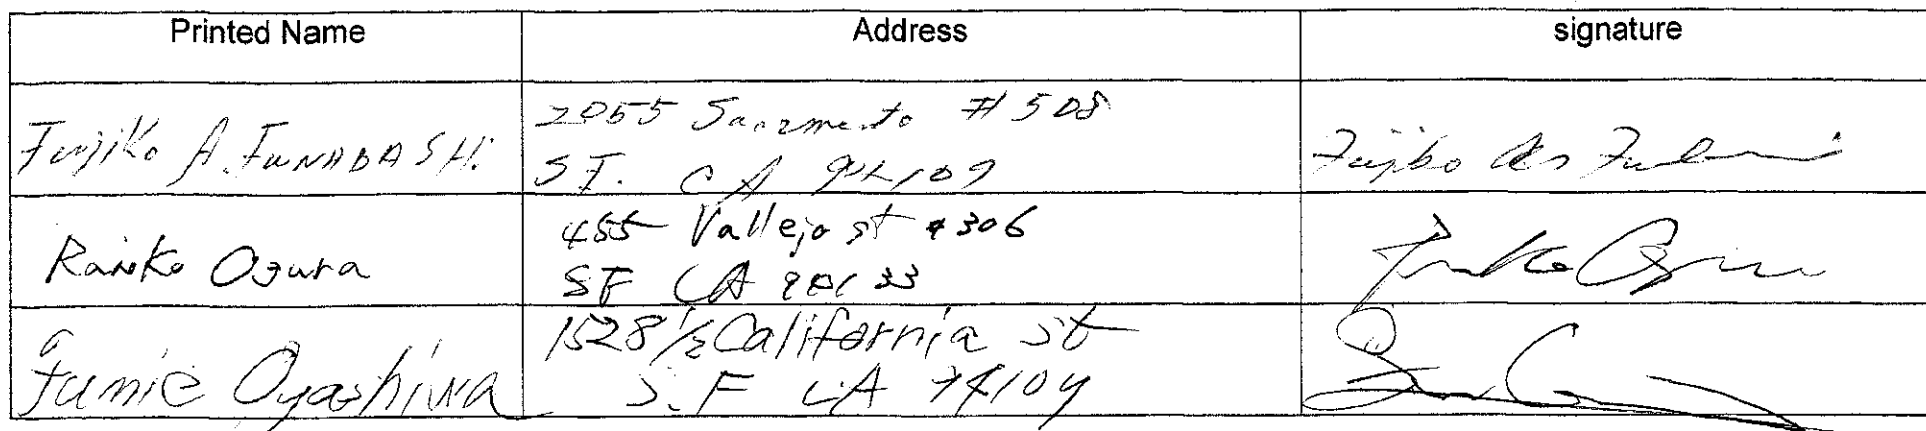 Printed Name Address signature
Fujiko A. FUNABASHI 2055 Sacramento #508
S.F. CA 94109
Raiko Ogura 455 Vallejo st #306
SF CA 94133
Fumie Oyashiwa 1528 1/2 California St
S.F CA 94109